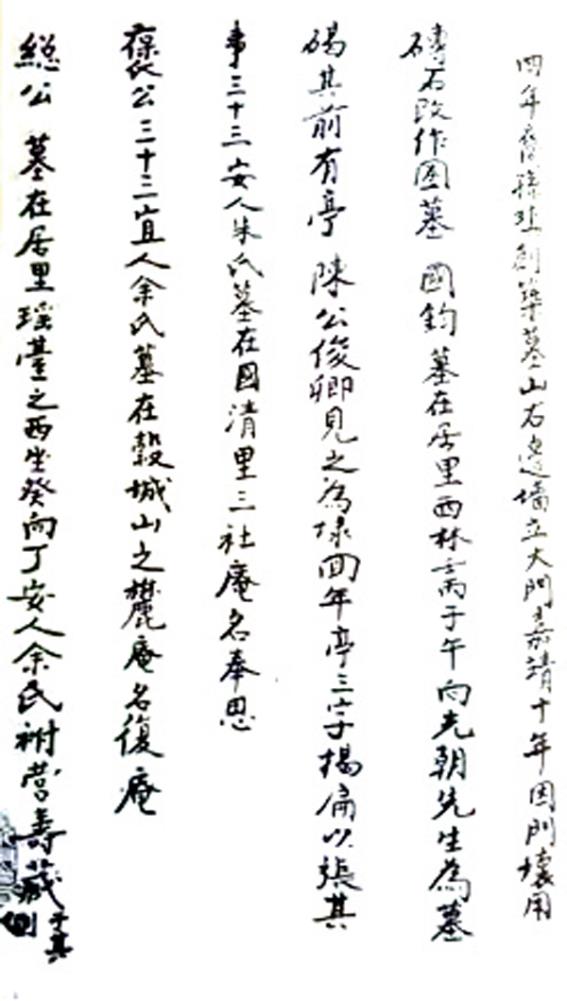 四年裔孫珪創築墓山右邊墻立大門嘉靖十年因門壞用
磚石改作圍墓 國鈞墓在居里西林壽子午向先朝先生為墓
碣其前有亭 陳公俊卿見之為掾回年亭三字揭扁以張其
事三十三安人朱氏墓在國清里三社庵名奉思
褒公三十三宜人余氏墓在穀城山之麓庵名復庵
總公 墓在居里瑤臺之西坐癸向丁安人余氏祔营壽藏于其側